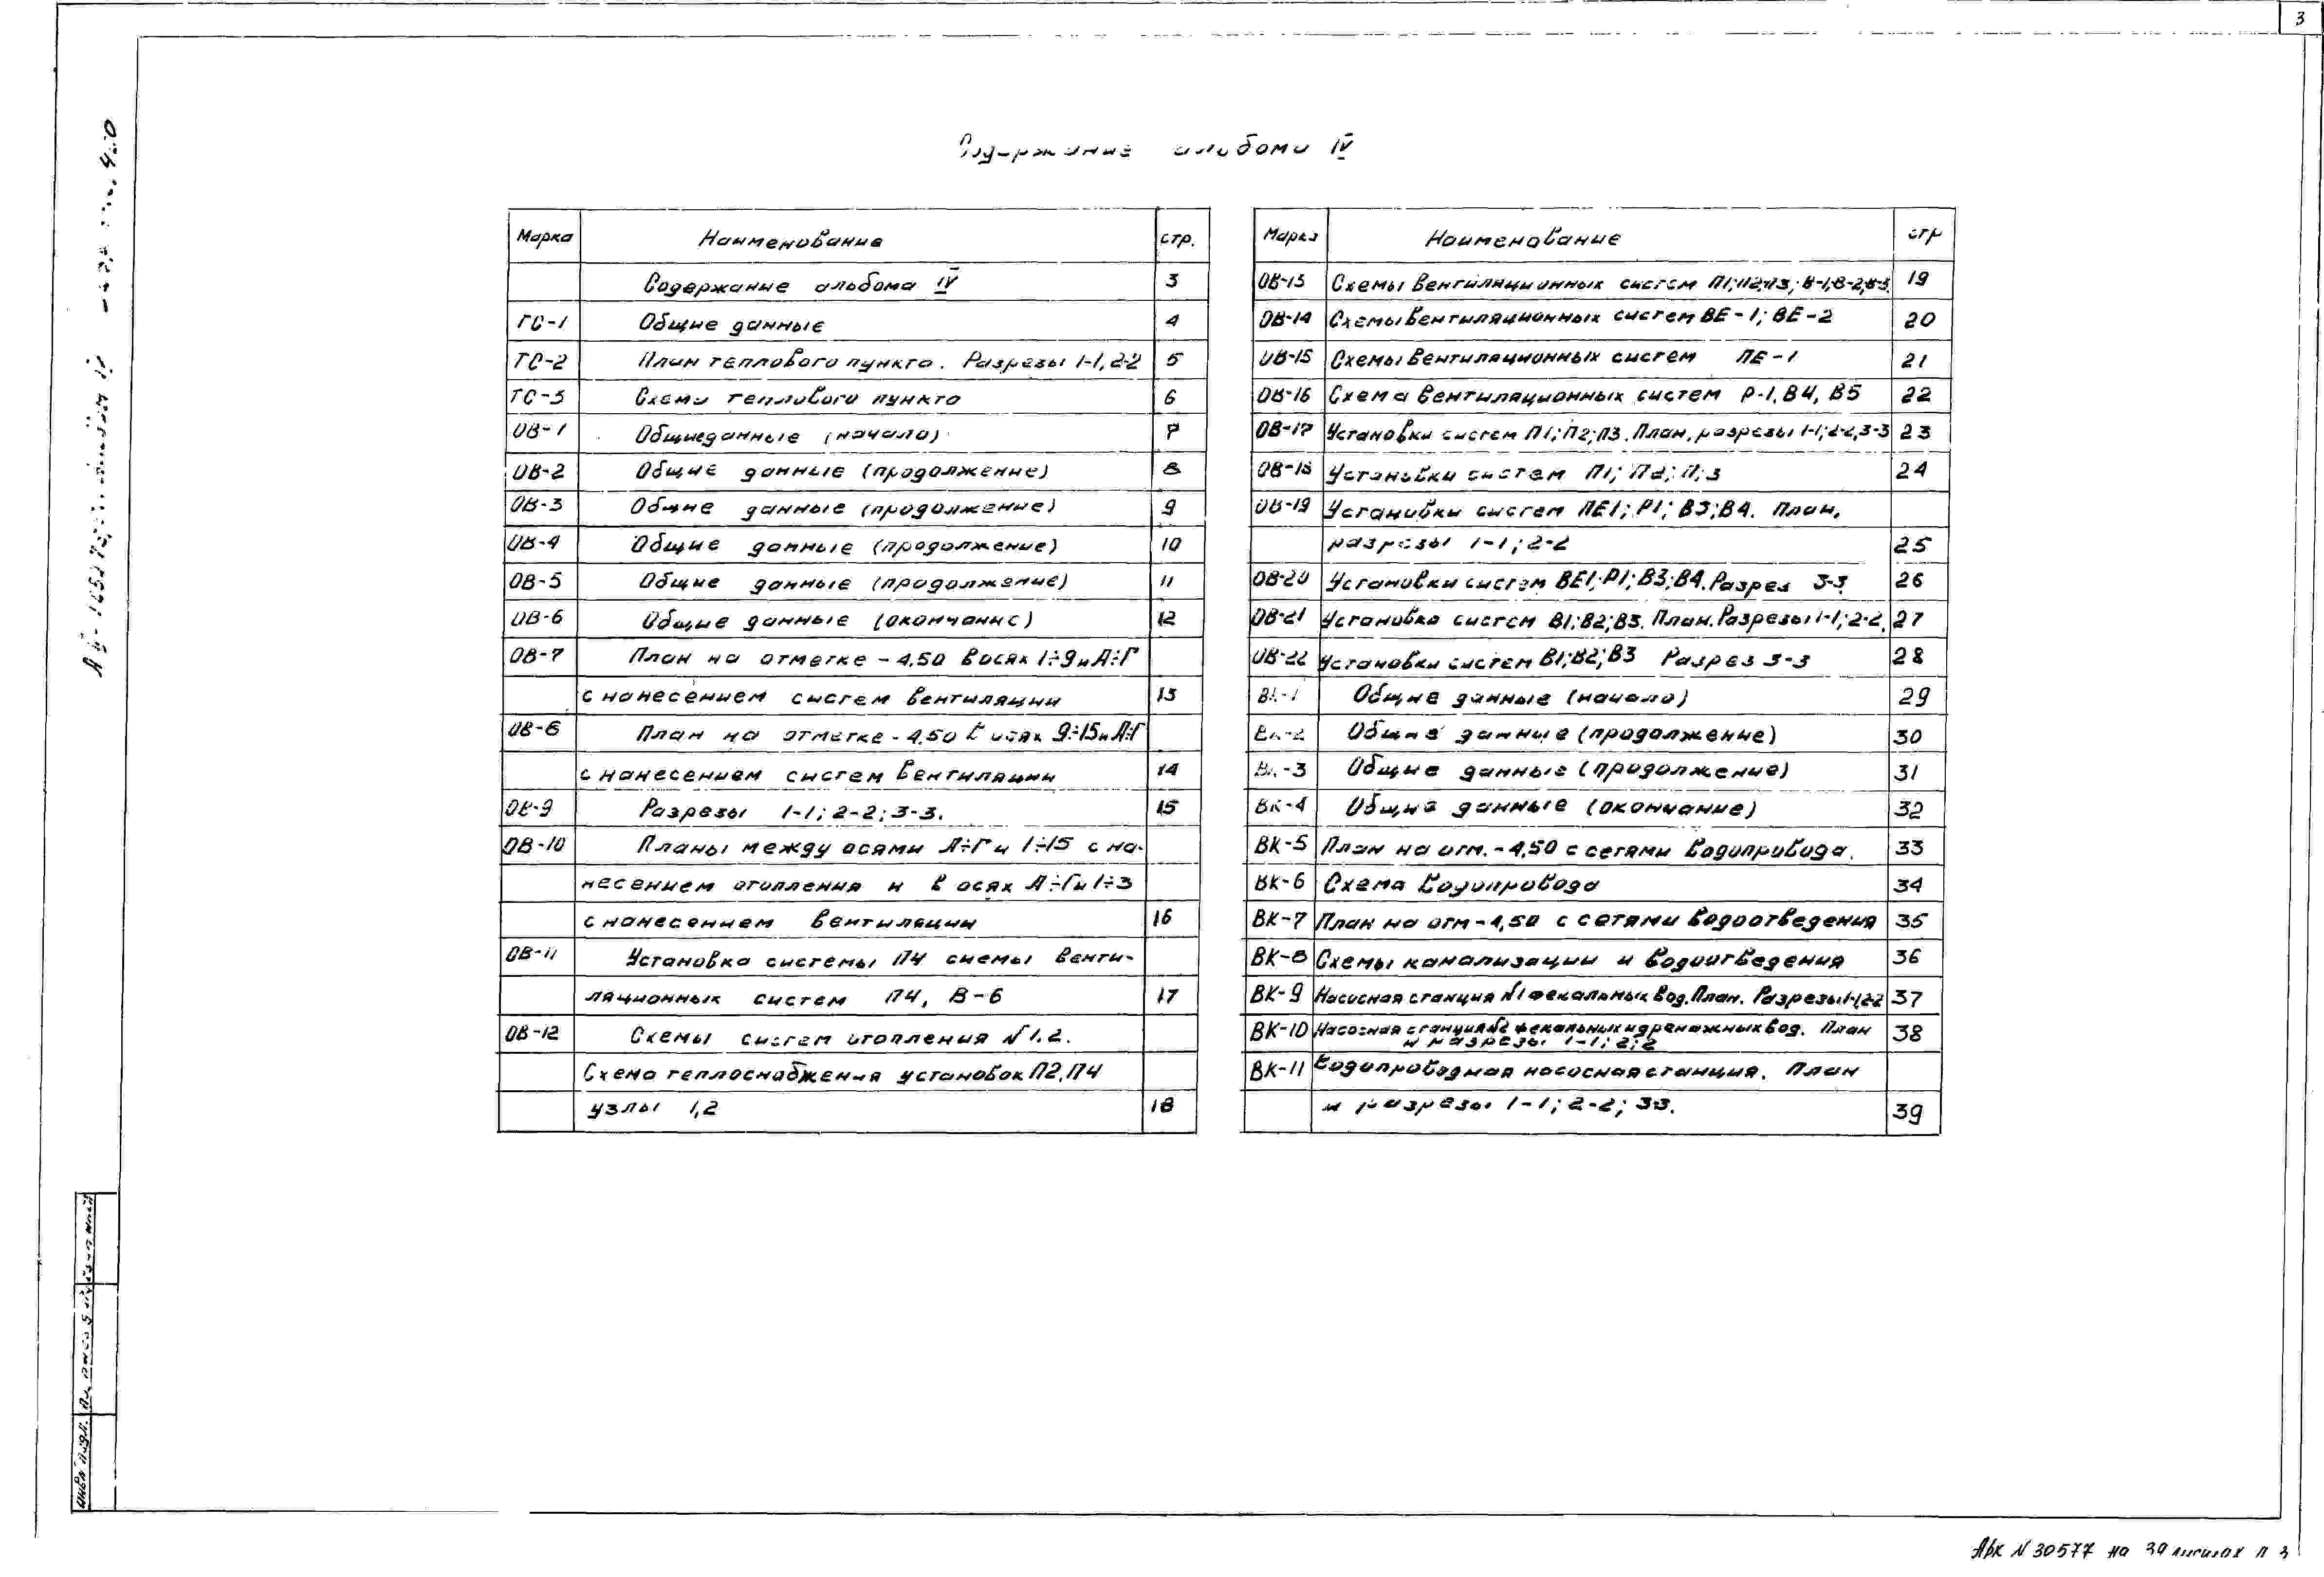 3
Содержание альбома IV
Марка Наименование стр.
Содержание альбома IV 3
ТС-1 Общие данные 4
ТС-2 План теплового пункта. Разрезы 1-1, 2-2 5
ТС-3 Схема теплового пункта 6
ОВ-1 Общие данные (начало) 7
ОВ-2 Общие данные (продолжение) 8
ОВ-3 Общие данные (продолжение) 9
ОВ-4 Общие данные (продолжение) 10
ОВ-5 Общие данные (продолжение) 11
ОВ-6 Общие данные (окончание) 12
ОВ-7 План на отметке -4,50 в осях 1÷9 и А÷Г
с нанесением систем вентиляции 13
ОВ-8 План на отметке -4,50 в осях 9÷15 и А÷Г
с нанесением систем вентиляции 14
ОВ-9 Разрезы 1-1; 2-2; 3-3. 15
ОВ-10 Планы между осями А÷Г и 1÷15 с на-
несением отопления и в осях А÷Г и 1÷3
с нанесением вентиляции 16
ОВ-11 Установка системы П4 схемы венти-
ляционных систем П4, В-6 17
ОВ-12 Схемы систем отопления N 1,2.
Схема теплоснабжения установок П2, П4
узлы 1,2 18
Марка Наименование стр
ОВ-13 Схемы вентиляционных систем П1; П2; П3; В-1; В-2; В-3. 19
ОВ-14 Схемы вентиляционных систем ВЕ-1; ВЕ-2 20
ОВ-15 Схемы вентиляционных систем ПЕ-1 21
ОВ-16 Схема вентиляционных систем Р-1, В4, В5 22
ОВ-17 Установки систем П1; П2; П3. План, разрезы 1-1; 2-2, 3-3 23
ОВ-18 Установки систем П1; П2; П; 3 24
ОВ-19 Установки систем ПЕ1; Р1; В3; В4. План,
разрезы 1-1; 2-2 25
ОВ-20 Установки систем ВЕ1; Р1; В3; В4. Разрез 3-3 26
ОВ-21 Установка систем В1; В2; В3. План. Разрезы 1-1; 2-2. 27
ОВ-22 Установки систем В1; В2; В3 Разрез 3-3 28
ВК-1 Общие данные (начало) 29
ВК-2 Общие данные (продолжение) 30
ВК-3 Общие данные (продолжение) 31
ВК-4 Общие данные (окончание) 32
ВК-5 План на отм. -4,50 с сетями водопровода. 33
ВК-6 Схема водопровода 34
ВК-7 План на отм -4,50 с сетями водоотведения 35
ВК-8 Схемы канализации и водоотведения 36
ВК-9 Насосная станция N1 фекальных вод. План. Разрезы 1-1, 2-2 37
ВК-10 Насосная станция N2 фекальных и дренажных вод. План 38
и разрезы 1-1; 2; 2
ВК-11 Водопроводная насосная станция. План
и разрезы 1-1; 2-2; 3-3. 39
Инв N подл.
N 30577 на 39 листах л 3